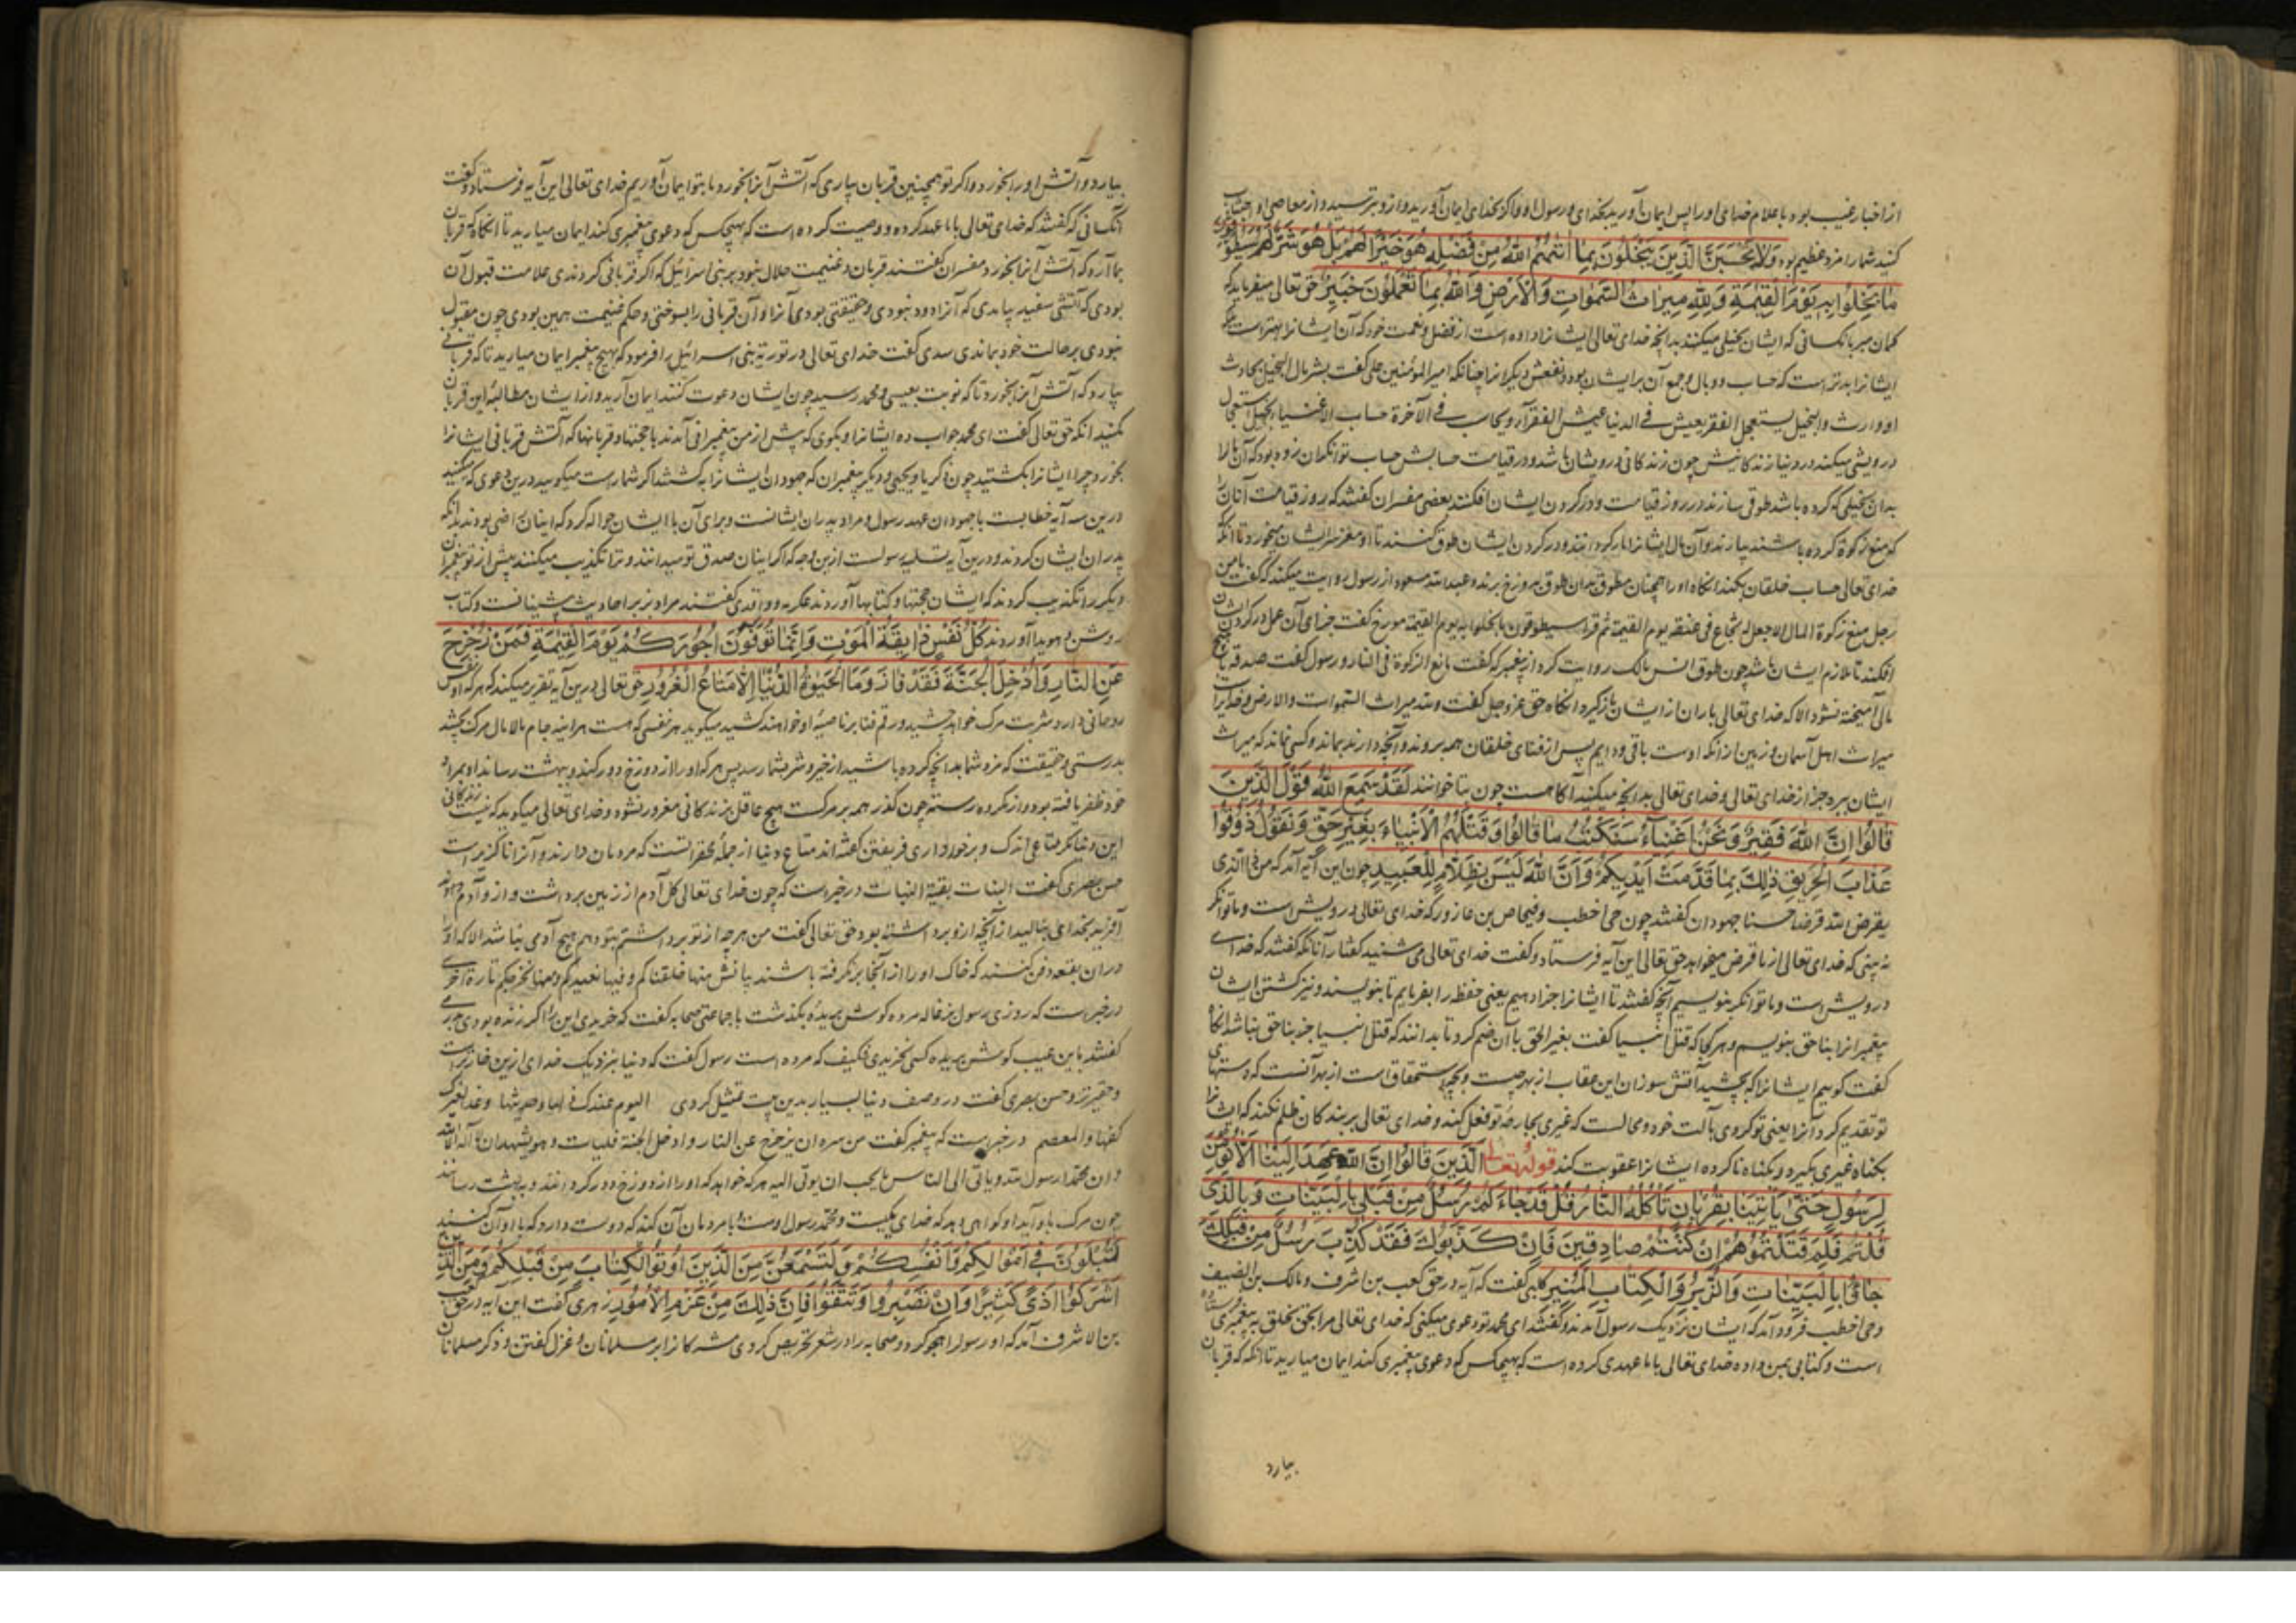 از اخبار غیب بود باعلام خدای او را پس ایمان آورید بخدای و رسول او و اگر بخدای ایمان آورید و ازو بترسید و از معاصی او اجتناب
کنید شما را مزد عظیم بود وَلَا يَحْسَبَنَّ الَّذِينَ يَبْخَلُونَ بِمَا آتٰيهُمُ اللّٰهُ مِنْ فَضْلِهِ هُوَ خَيْرًا لَهُمْ بَلْ هُوَ شَرٌّ لَهُمْ سَيُطَوَّقُونَ
مَا بَخِلُوا بِهِ يَوْمَ الْقِيٰمَةِ وَلِلّٰهِ مِيرَاثُ السَّمٰوَاتِ وَالْاَرْضِ وَاللّٰهُ بِمَا تَعْمَلُونَ خَبِيرٌ حق تعالی میفرماید که
گمان مبر بانکسانی که ایشان بخیلی میکنند بدانچه خدای تعالی ایشانرا داده است از فضل و نعمت خود که آن ایشانرا بهتر است بلکه
ایشانرا بدتر است که حساب و وبال و جمع آن بر ایشان بود و نفعش دیگرانرا چنانکه امیر المؤمنین علی گفت بشر مال البخیل بحادث
او وارث والبخیل یستعجل الفقر یعیش فی الدنیا عیش الفقرآء ویحاسب فی الآخرة حساب الاغنیاء بخیل استعجال
درویشی میکند در دنیا زندگانیش چون زندگانی درویشان باشد و در قیامت حسابش حساب توانگران بود که آن را
بدان بخیلی که کرده باشد طوقی سازند در روز قیامت و در گردن ایشان افکنند بعضی مفسران گفتند که روز قیامت آنان را
که منع زکوة کرده باشند بیارند و آن مال ایشانرا مار گردانند و در گردن ایشان طوق کنند تا او مغز سر ایشان میخورد تا آنکه
خدای تعالی حساب خلقان بکند آنگاه او را همچنان مطوق بدان طوق بدوزخ برند و عبد الله مسعود از رسول روایت میکند که گفت ما من
رجل منع زکوة المال الا جعل له شجاع فی عنقه یوم القیمة ثم قرأ سیطوقون ما بخلوا به یوم القیمة مورخ گفت جزای آن عمل در گردن ایشان
افکند تا ملازم ایشان باشد چون طوق انس مالک روایت کرد از پیغمبر که گفت مانع الزکوة فی النار و رسول گفت صدقه با هیچ
مالی آمیخته نشود الا که خدای تعالی باران از ایشان بازگیرد آنگاه حق عز و جل گفت ولله میراث السموات والارض و خدایرا
میراث اهل آسمان و زمین از آنکه اوست باقی و دایم پس از فنای خلقان همه بروند و آنچه دارند بماند و کسی نماند که میراث
ایشان ببرد جز از خدای تعالی و خدای تعالی بدانچه میکنید آگاهست چون بتا خوانند لَقَدْ سَمِعَ اللّٰهُ قَوْلَ الَّذِينَ
قَالُوا اِنَّ اللّٰهَ فَقِيرٌ وَنَحْنُ اَغْنِيَآءُ سَنَكْتُبُ مَا قَالُوا وَقَتْلَهُمُ الْاَنْبِيَآءَ بِغَيْرِ حَقٍّ وَنَقُولُ ذُوقُوا
عَذَابَ الْحَرِيقِ ذٰلِكَ بِمَا قَدَّمَتْ اَيْدِيكُمْ وَاَنَّ اللّٰهَ لَيْسَ بِظَلَّامٍ لِلْعَبِيدِ چون این آیه آمد که من ذا الذی
یقرض الله قرضا حسنا جهودان گفتند چون حی اخطب و فنحاص بن عازور که خدای تعالی درویش است و ما توانگر
نه بینی که خدای تعالی از ما قرض میخواهد حق تعالی این آیه فرستاد و گفت خدای تعالی می شنید گفتار آنانکه گفتند که خدای
درویش است و ما توانگر بنویسیم آنچه گفتند تا ایشانرا جزا دهیم یعنی حفظه را بفرماییم تا بنویسند و نیز کشتن ایشان
پیغمبرانرا بناحق بنویسیم و هر کجا که قتل انبیا گفت بغیر الحق با آن ضم کرد تا بدانند که قتل انبیا جز بناحق نباشد آنگاه
گفت گوییم ایشانرا که بچشید آتش سوزان این عقاب از بهر چیست و بچه استحقاق است از بهر آنست که دستهای
تو تقدیم کرد آنرا یعنی تو کردی بآلت خود و محالست که غیری بجارحه تو فعل کند و خدای تعالی بر بندگان ظلم نکند که ایشانرا
بگناه غیری بگیرد و بگناه ناکرده ایشانرا عقوبت کند قوله تعالی الَّذِينَ قَالُوا اِنَّ اللّٰهَ عَهِدَ اِلَيْنَا اَلَّا نُؤْمِنَ
لِرَسُولٍ حَتّٰى يَاْتِيَنَا بِقُرْبَانٍ تَاْكُلُهُ النَّارُ قُلْ قَدْ جَاءَكُمْ رُسُلٌ مِنْ قَبْلِي بِالْبَيِّنَاتِ وَبِالَّذِي
قُلْتُمْ فَلِمَ قَتَلْتُمُوهُمْ اِنْ كُنْتُمْ صَادِقِينَ فَاِنْ كَذَّبُوكَ فَقَدْ كُذِّبَ رُسُلٌ مِنْ قَبْلِكَ
جَاؤُا بِالْبَيِّنَاتِ وَالزُّبُرِ وَالْكِتَابِ الْمُنِيرِ کلبی گفت که آیه در حق کعب بن اشرف و مالک بن الضیف
و حی اخطب فرود آمد که ایشان نزدیک رسول آمدند و گفتند ای محمد تو دعوی میکنی که خدای تعالی مرا بحق بخلق به پیغمبری فرستاده
است و کتابی بمن داده خدای تعالی با ما عهدی کرده است که بهیچکس که دعوی پیغمبری کند ایمان میارید تا آنکه که قربان
بیارد
بیارد و آتش او را بخورد و اگر تو همچنین قربان بیاری که آتش آنرا بخورد ما بتو ایمان آوریم خدای تعالی این آیه فرستاد و گفت
آنکسانی که گفتند که خدای تعالی با ما عهد کرده و وصیت کرده است که بهیچکس که دعوی پیغمبری کند ایمان میارید تا آنگاه که قربان
بما آرد که آتش آنرا بخورد مفسران گفتند قربان و غنیمت حلال نبود بر بنی اسرائیل که اگر قربانی کردندی علامت قبول آن
بودی که آتشی سفید بیامدی که آنرا دود نبودی و حفیفی بودی آنرا و آن قربانی را بسوختی و حکم غنیمت همین بودی چون مقبول
نبودی بر حالت خود بماندی سدی گفت خدای تعالی در توریة بنی اسرائیل را فرمود که بهیچ پیغمبر ایمان میارید تا که قربانی
بیارد که آتش آنرا بخورد تا که نوبت بعیسی و محمد رسید چون ایشان دعوت کنند ایمان آرید و از ایشان مطالبه این قربان
مکنید آنگه حق تعالی گفت ای محمد جواب ده ایشانرا و بگوی که پیش از من پیغمبرانی آمدند با حجتها و قربانها که آتش قربانی ایشانرا
بخورد چرا ایشانرا بکشتید چون زکریا و یحیی و دیگر پیغمبران که جهودان ایشانرا بکشتند اگر شما راست میگویید درین دعوی که میکنید
درین سه آیه خطابست با جهودان عهد رسول و مراد پدران ایشانست و برای آن با ایشان حواله کرد که اینان راضی بودند بدانکه
پدران ایشان کردند و درین آیه تسلیه رسولست ازین وجه که اگر اینان صدق تو میدانند و ترا تکذیب میکنند پیش از تو پیغمبران
دیگر را تکذیب کردند که ایشان حجتها و کتابها آوردند عکرمه و واقدی گفتند مراد بزبر احادیث پیشینانست و کتاب
روشن و هویدا آوردند كُلُّ نَفْسٍ ذَايِقَةُ الْمَوْتِ وَاِنَّمَا تُوَفَّوْنَ اُجُورَكُمْ يَوْمَ الْقِيٰمَةِ فَمَنْ زُحْزِحَ
عَنِ النَّارِ وَاُدْخِلَ الْجَنَّةَ فَقَدْ فَازَ وَمَا الْحَيٰوةُ الدُّنْيَا اِلَّا مَتَاعُ الْغُرُورِ حق تعالی درین آیه تقریر میکند که هر که او نفس
روحانی دارد شربت مرگ خواهد چشید و رقم فنا بر ناصیه او خواهند کشید میگوید هر نفسی که هست هر اینه جام مالامال مرگ بچشد
بدرستی و حقیقت که مزد شما بدانچه کرده باشید از خیر و شر بشما رسد پس هر که او را از دوزخ دور کنند و ببهشت رسانند او بمراد
خود ظفر یافته بود و از مکروه رسته چون گذر همه بر مرگست هیچ عاقل بزندگانی مغرور نشود و خدای تعالی میگوید که نیست زندگانی
این دنیا مگر متاعی اندک و برخورداری فریفتن گفته اند متاع دنیا از جمله محقراتست که مردمان دارند و آنرا ناگزیر است
حسن بصری گفت النبات بقیة النبات در خبر است که چون خدای تعالی گل آدم از زمین برداشت و ازو آدم
آفرید بخدای بنالید از آنچه ازو برداشته بود حق تعالی گفت من هر چه از تو برداشتم بتو دهم هیچ آدمی نباشد الا که او را
در آن بقعه دفن کنند که خاک او را از آنجا برگرفته باشند بیانش منها خلقناکم وفیها نعیدکم ومنها نخرجکم تارة اخری
در خبر است که روزی رسول بزغاله مرده گوش بریده بگذشت با جماعتی صحابه گفت که خرد این را اگر زنده بودی
گفتند باین عیب گوش بریده کسی نخریدی فکیف که مرده است رسول گفت که دنیا بنزدیک خدای ازین خوارتر است
و حقیرتر و حسن بصری گفت در وصف دنیا بسیار بدین بیت تمثیل کردی الیوم عندک دلها وحدیثها وغدا لغیرک
کفها والمعصم در خبر است که پیغمبر گفت من سره ان یزحزح عن النار وادخل الجنة فلیأت وهو یشهد ان لا اله الا الله
وان محمدا رسول الله ویأتی الی الناس ما یحب ان یؤتی الیه هر که خواهد که او را از دوزخ دور گردانند و ببهشت رسانند
چون مرگ باو آید او گواهی دهد که خدای یکیست و محمد رسول اوست و با مردمان آن کند که دوست دارد که با او آن کنند
لَتُبْلَوُنَّ فِي اَمْوَالِكُمْ وَاَنْفُسِكُمْ وَلَتَسْمَعُنَّ مِنَ الَّذِينَ اُوتُوا الْكِتَابَ مِنْ قَبْلِكُمْ وَمِنَ الَّذِينَ
اَشْرَكُوا اَذًى كَثِيرًا وَاِنْ تَصْبِرُوا وَتَتَّقُوا فَاِنَّ ذٰلِكَ مِنْ عَزْمِ الْاُمُورِ زهری گفت این آیه در حق کعب
بن الاشرف آمد که او رسول را هجو کرد و صحابه را و در شعر تحریص کردی مشرکانرا بر مسلمانان و غزل گفتن و ذکر مسلمانان